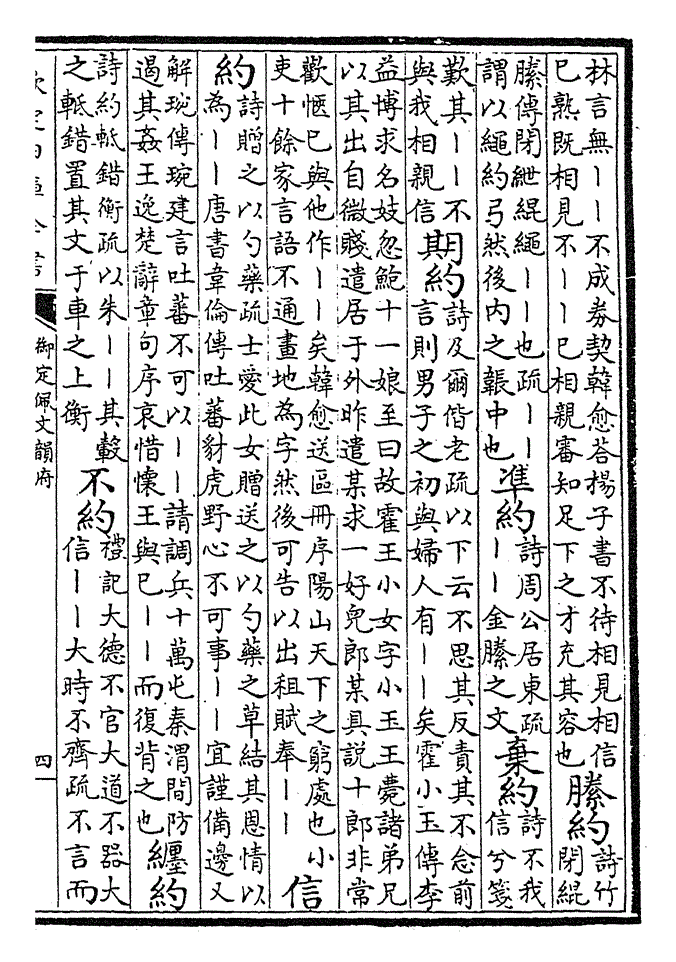 林言無——不成券契韓愈荅楊子書不待相見相信
已熟既相見不——已相親審知足下之才充其容也
縢約
詩竹
閉緄
縢傳閉紲緄繩——也疏——
謂以繩約弓然後内之韔中也
準約
詩周公居東疏
——金縢之文
棄約
詩不我
信兮箋
歎其——不
與我相親信
期約
詩及爾偕老疏以下云不思其反責其不念前
言則男子之初與婦人有——矣霍小玉傳李
益博求名妓忽鮑十一娘至曰故霍王小女字小玉王薨諸弟兄
以其出自微賤遣居于外昨遣某求一好兒郎某具説十郎非常
歡愜已與他作——矣韓愈送區冊序陽山天下之窮處也小
吏十餘家言語不通畫地為字然後可告以出租賦奉——
信
約
詩贈之以勺藥疏士愛此女贈送之以勺藥之草結其恩情以
為——唐書韋倫傳吐蕃豺虎野心不可事——宜謹備邊又
解琬傳琬建言吐蕃不可以——請調兵十萬屯秦渭間防
遏其姦王逸楚辭章句序哀惜懷王與已——而復背之也
纏約
詩約軧錯衡疏以朱——其轂
之軧錯置其文于車之上衡
不約
禮記大德不官大道不器大
信——大時不齊疏不言而
欽定四庫全書
御定佩文韻府
四